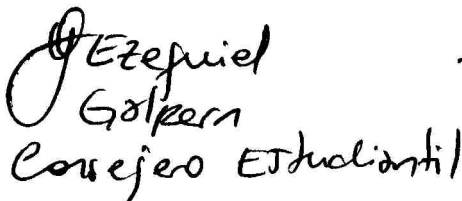 Ezequiel
Galpern
Consejero Estudiantil